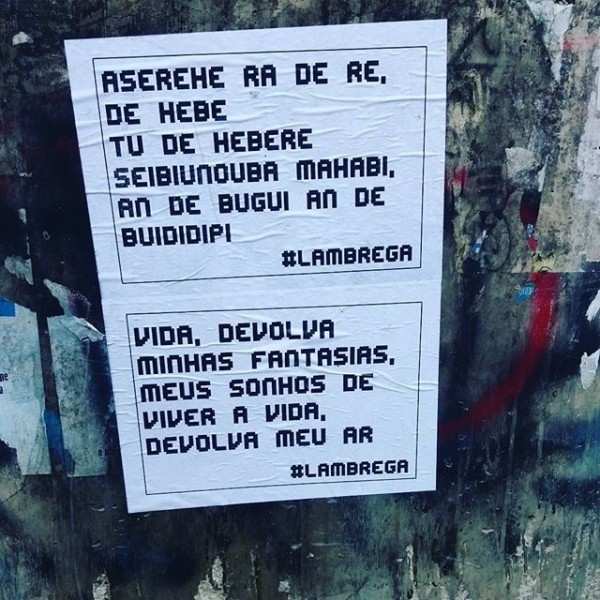 ASEREHE RA DE RE,
DE HEBE
TU DE HEBERE
SEIBIUNOUBA MAHABI,
AN DE BUGUI AN DE
BUIDIDIPI
#LAMBREGA
VIDA, DEVOLVA
MINHAS FANTASIAS,
MEUS SONHOS DE
VIVER A VIDA,
DEVOLVA MEU AR
#LAMBREGA